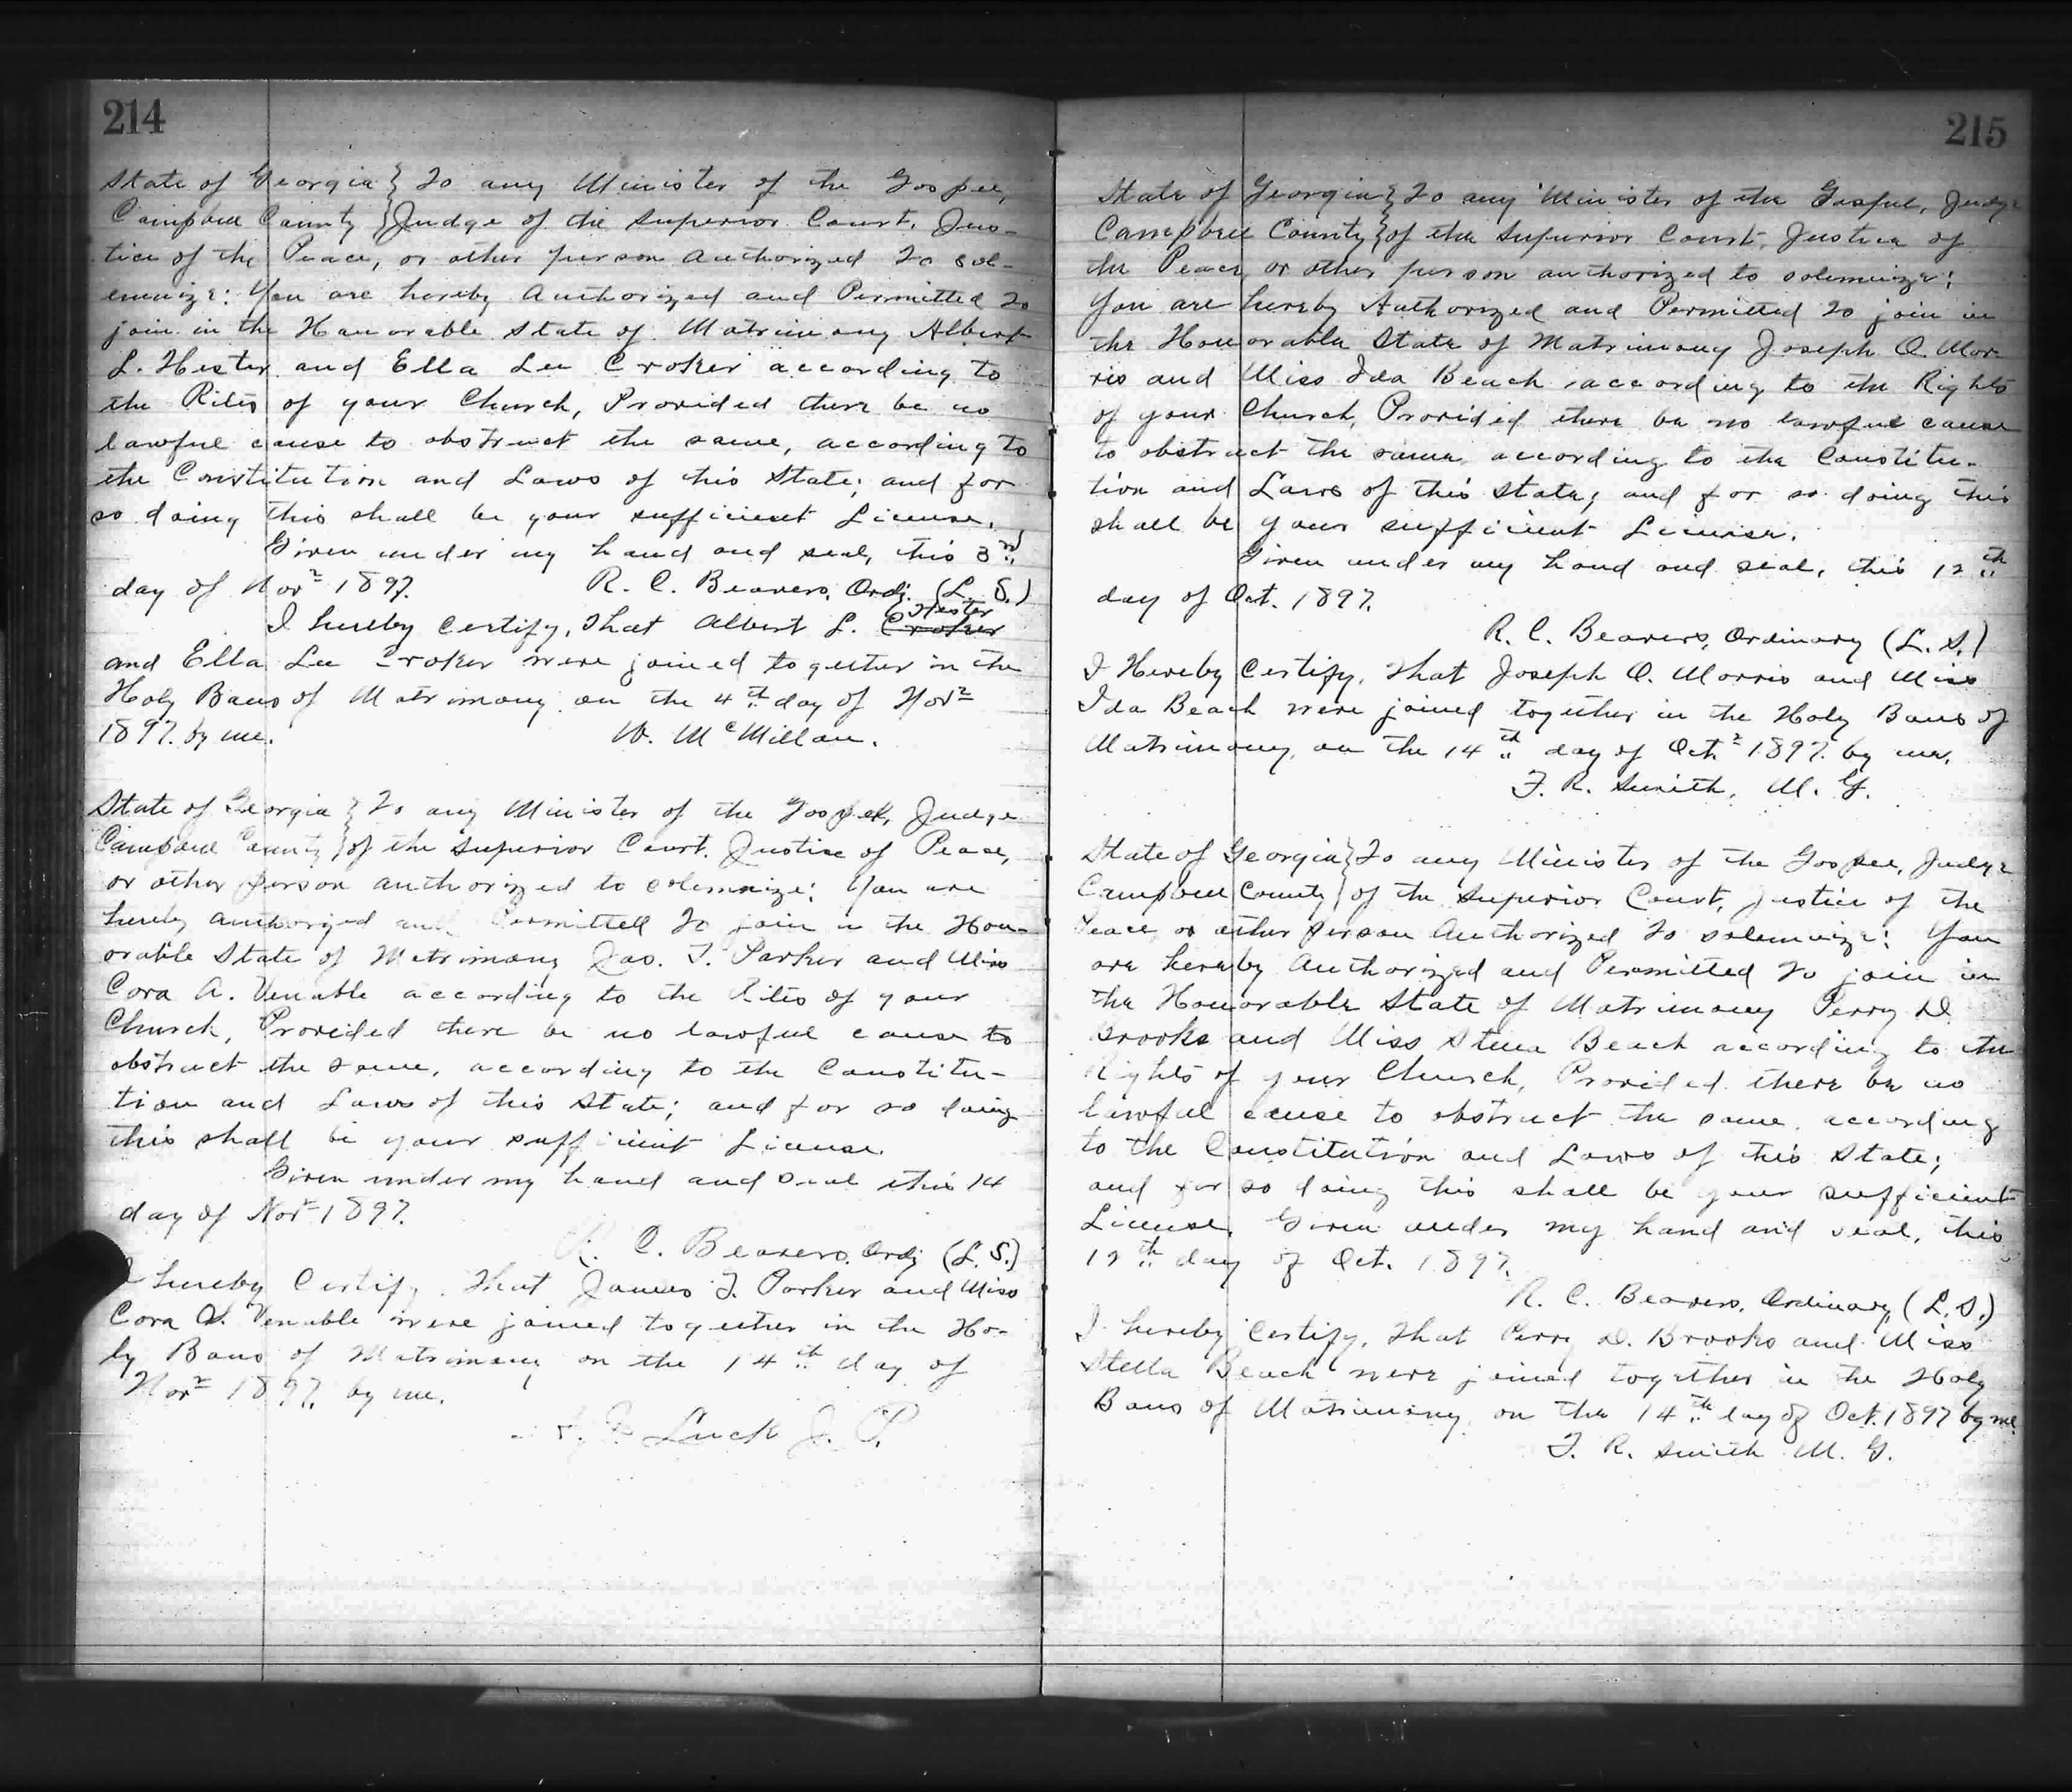 214
State of Georgia } To any Minister of the Gospel,
Campbell County } Judge of the Superior Court, Jus-
tice of the Peace, or other person Authorized To sol-
emnize: You are hereby Authorized and Permitted To
join in the Honorable State of Matrimony Albert
L. Hester and Ella Lee Croker according to
the Rites of your Church, Provided there be no
lawful cause to obstruct the same, according to
the Constitution and Laws of this State; and for
so doing this shall be your sufficient License.
Given under my hand and seal, this 3rd
day of Novr 1897. R. C. Beavers, Ordy. (L. S.)
I hereby Certify, That Albert L. Croker Hester
and Ella Lee Croker were joined together in the
Holy Bans of Matrimony on the 4th day of Novr
1897. by me. W. McMillan.
State of Georgia } To any Minister of the Gospel, Judge
Campbell County } of the Superior Court, Justice of Peace,
or other person authorized to solemnize: You are
hereby authorized and Permitted To join in the Hon-
orable State of Matrimony Jas. T. Parker and Miss
Cora A. Venable according to the Rites of your
Church, Provided there be no lawful cause to
obstruct the same, according to the Constitu-
tion and Laws of this State; and for so doing
this shall be your sufficient License.
Given under my hand and Seal this 14
day of Novr 1897.
R. C. Beavers, Ordy (L. S.)
I hereby Certify, That James T. Parker and Miss
Cora A. Venable were joined together in the Ho-
ly Bans of Matrimony on the 14th day of
Novr 1897. by me.
Luck J. P.
215
State of Georgia } To any Minister of the Gospel, Judge
Campbell County } of the Superior Court, Justice of
the Peace, or other person authorized to solemnize:
You are hereby Authorized and Permitted To join in
the Honorable State of Matrimony Joseph O. Mor
ris and Miss Ida Beach according to the Rights
of your Church, Provided there be no lawful cause
to obstruct the same, according to the Constitu-
tion and Laws of this State; and for so doing this
shall be your sufficient License.
Given under my hand and seal, this 12th
day of Oct. 1897.
R. C. Beavers, Ordinary (L. S.)
I Hereby Certify, That Joseph O. Morris and Miss
Ida Beach were joined together in the Holy Bans of
Matrimony, on the 14th day of Octr 1897. by me.
F. R. Smith, M. G.
State of Georgia } To any Minister of the Gospel, Judge
Campbell County } of the Superior Court, Justice of the
Peace or other person Authorized To solemnize: You
are hereby Authorized and Permitted To join in
the Honorable State of Matrimony Perry D.
Brooks and Miss Stella Beach according to the
Rights of your Church, Provided there be no
lawful cause to obstruct the same, according
to the Constitution and Laws of this State;
and for so doing this shall be your sufficient
License. Given under my hand and seal, this
12th day of Oct. 1897.
R. C. Beavers, Ordinary, (L. S.)
I hereby Certify, That Perry D. Brooks and Miss
Stella Beach were joined together in the Holy
Bans of Matrimony on the 14th day of Oct. 1897 by me.
F. R. Smith M. G.